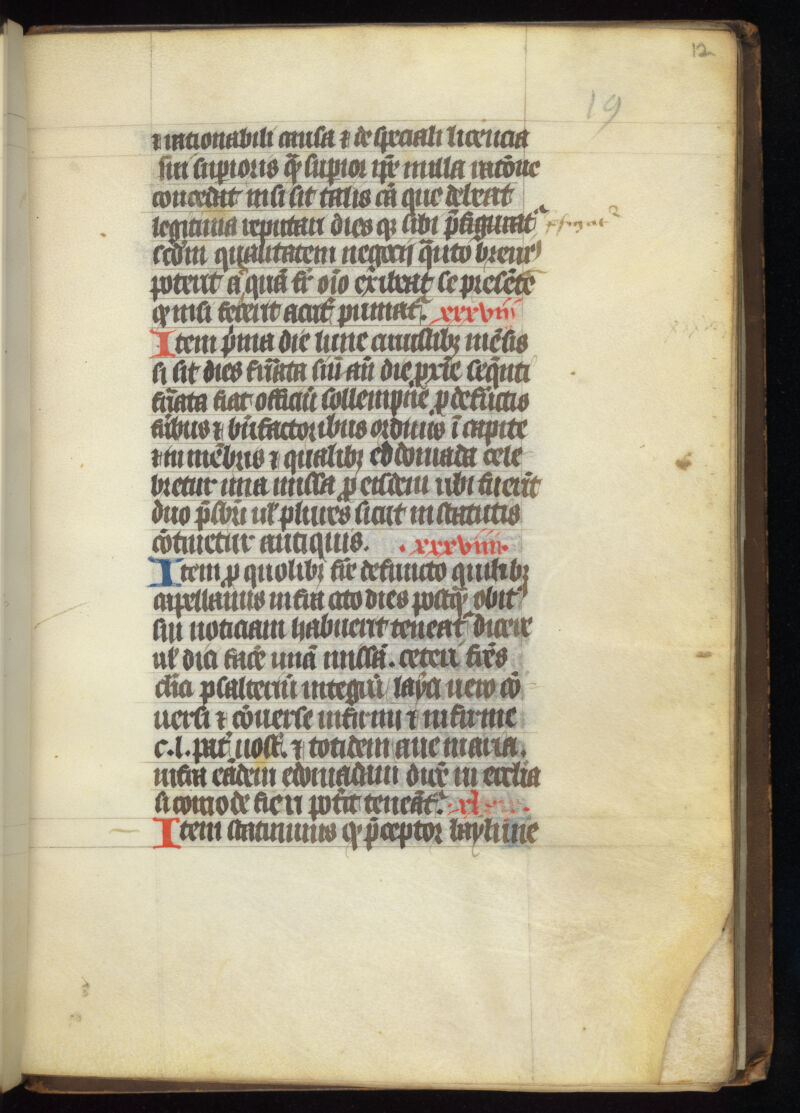 12
19
⁊ rationabili causa ⁊ de speciali licencia
sui supioris q̄ supior ip̄e nulla rat̄one
concedat nisi sit talis cā que debeat
legitima reputari dies qꝫ sibi p̄figurat᷑ p̄figat᷑
sc̄dm qualitatem negocij q̄nto breui᷑
poterit a quā fr̄ oīo exibeat se presētē
qd nisi fecerit acrit᷑ puniat᷑. xxxviii
Item p̄ma die lune cuiuslibꝫ mēsis
si sit dies fīata siū aū die px̄īe seq̄nti
fīata fiat officiū sollempne ꝓ defūctis
fr̄ibus ⁊ bn̄factoribus ordinis ī capite
⁊ in mēbris ⁊ qualibꝫ eddomada cele
bretur una missa ꝓ eisdem ubi fuerīt
duo p̄sbrī ul̄ plures sicut in statutis
cōtinetur antiquis. .xxxviiii.
Item ꝓ quolibꝫ fr̄e defuncto quilibꝫ
capellanus infra cto dies postq̄ obit᷑
sui noticiam habuerit teneat᷑ dicere
ul̄ dici facē unā missā. ceteri fr̄es
cl̄ici psalteriū integrū layci uero cō
uersi ⁊ cōuerse infirmi ⁊ infirme
c.l. pat᷑ nost᷑. ⁊ totidem aue maria.
infra eādem edomadam dicē in ecclīa
si comode fieri pot̄it teneāt᷑. .xl.
Item statuimus qd p̄ceptor layhune